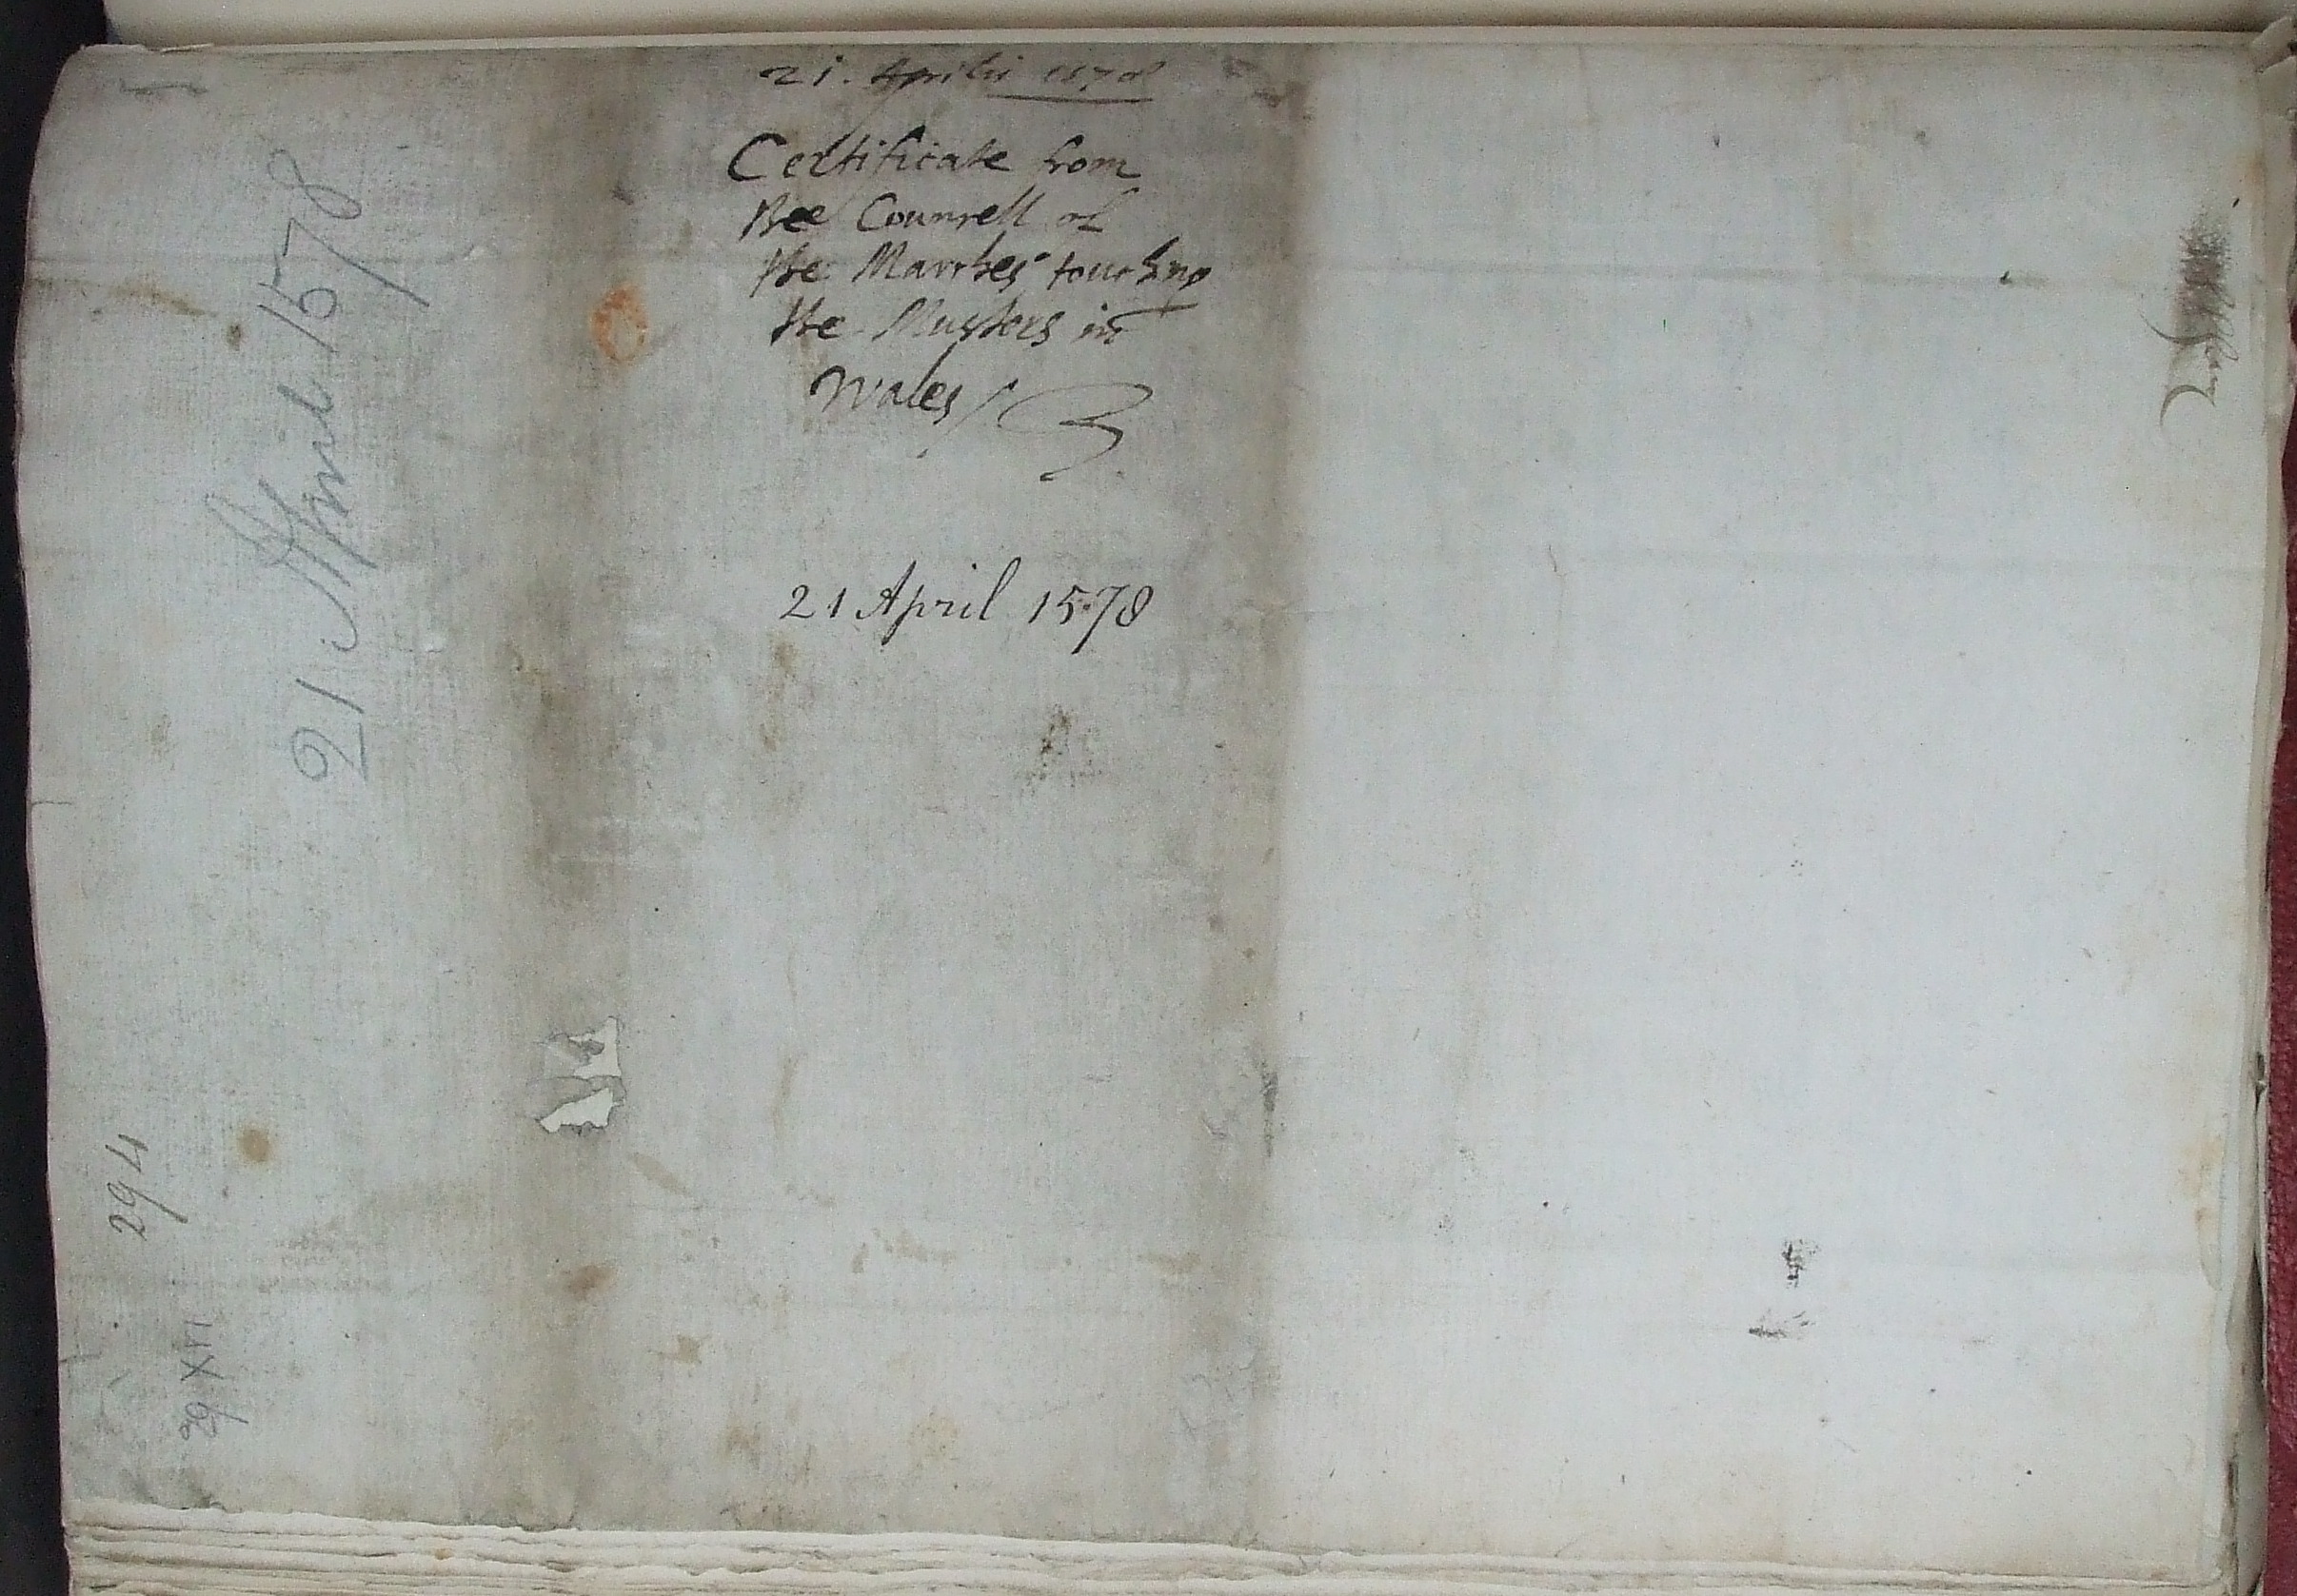 21. Aprilis 1578
Certificate from
the Counsell of
the Marches touching
the Musters in
Wales
21 April 1578
21 April 1578
294
29 XII